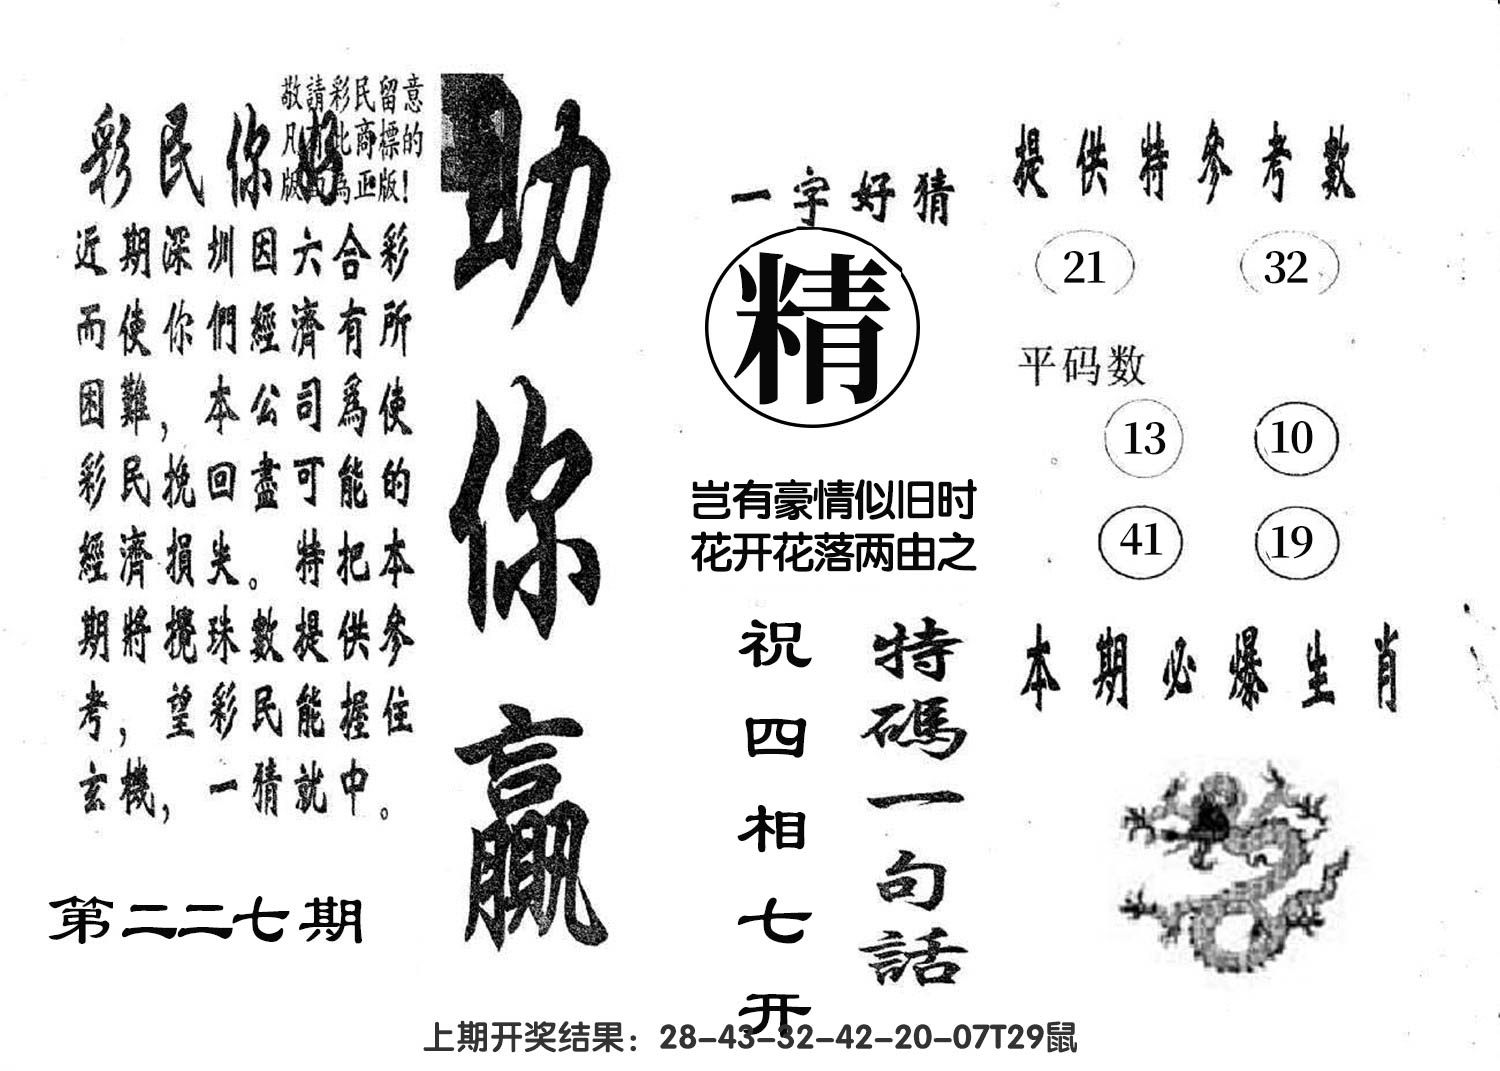 敬請彩民留意
凡有此商標的
版面為正版!
彩民你好
近期深圳因六合彩
而使你們經濟有所
困難，本公司爲使
彩民挽回盡可能的
經濟損失。特把本
期將攪珠數提供參
考，望彩民能握住
玄機，一猜就中。
第二二七期
助你贏
一字好猜
精
岂有豪情似旧时
花开花落两由之
特碼一句話
祝四相七开
提供特參考數
21 32
平码数
13 10
41 19
本期必爆生肖
上期开奖结果：28-43-32-42-20-07T29鼠